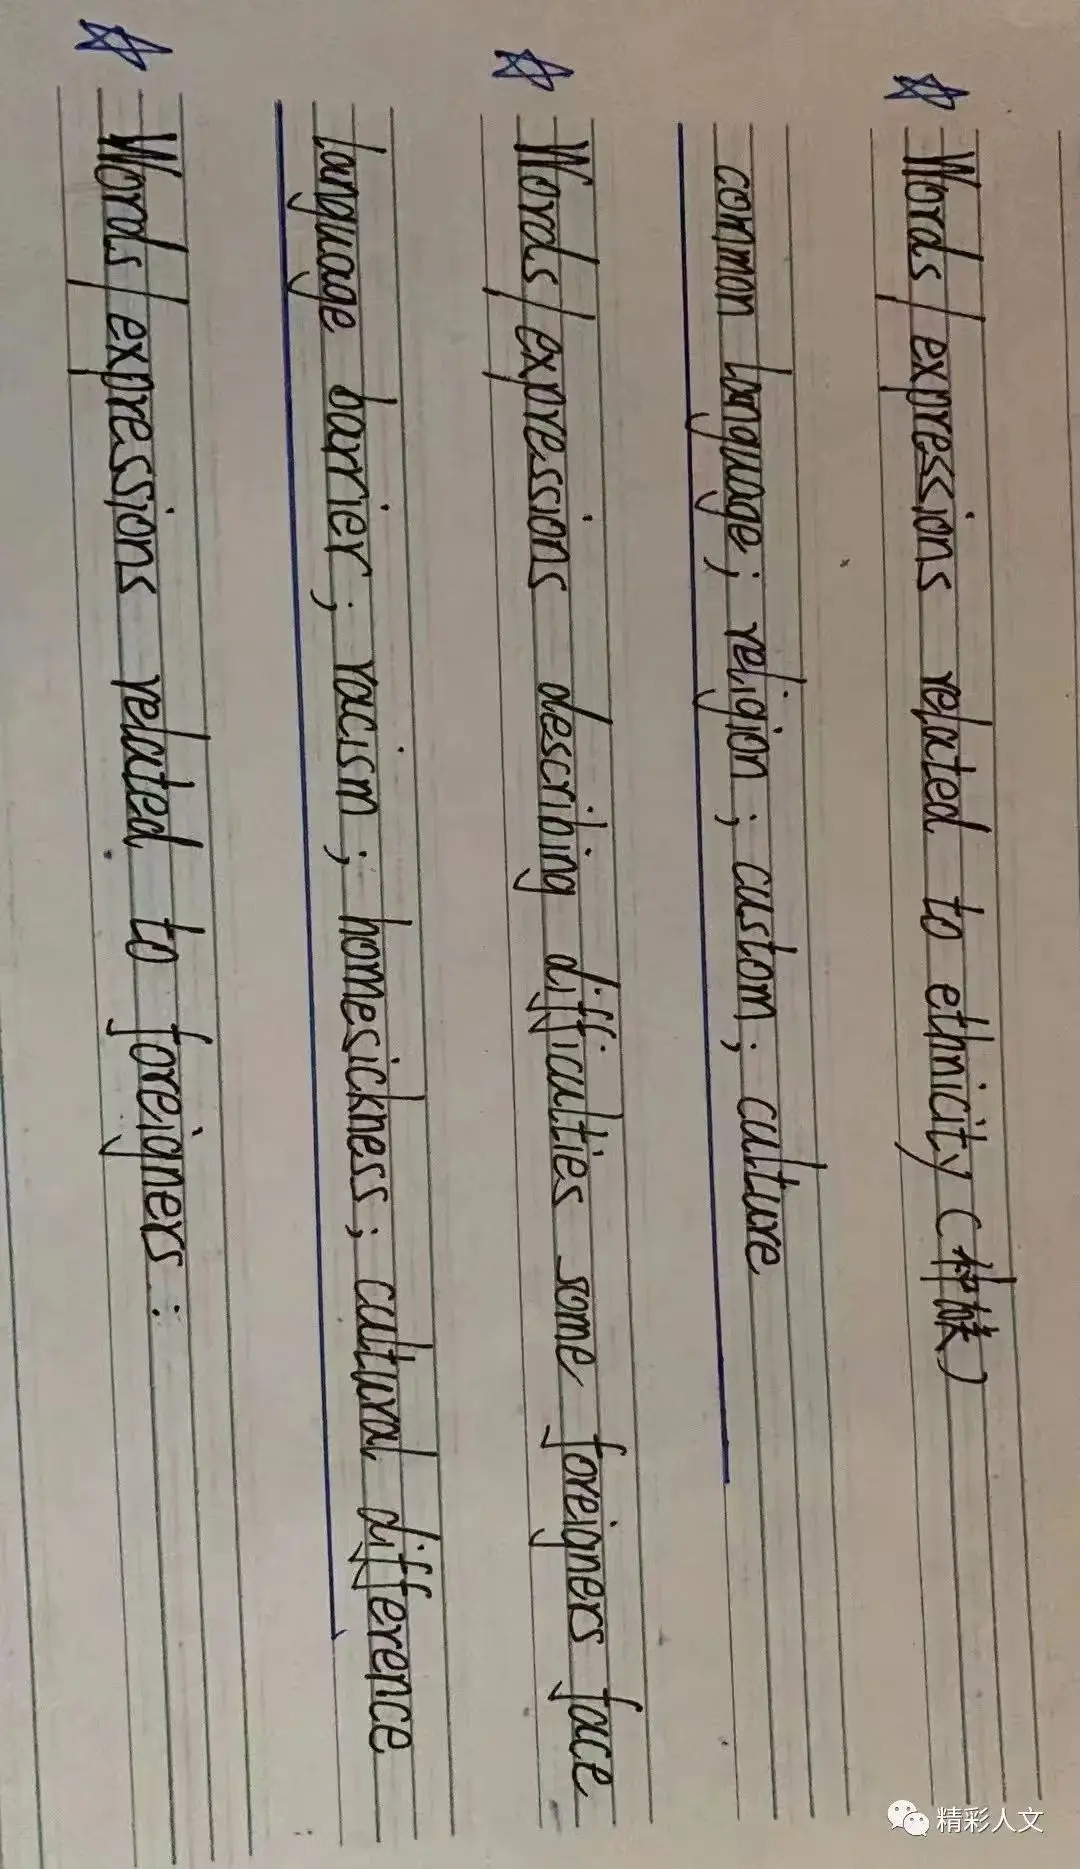 ☆ Words/expressions related to ethnicity (种族)
common language; religion; custom; culture
☆ Words/expressions describing difficulties some foreigners face
language barrier; racism; homesickness; cultural difference
☆ Words/expressions related to foreigners:
精彩人文